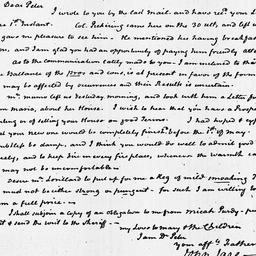 Dear Peter
I wrote to you by the last mail and have recd your L
1st Instant. Col. Pickering came here on the 30 ulto and left u
gave me pleasure to see him. He mentioned his having breakfas
and I am glad you had an opportunity of paying him friendly atte
as to the communication lately made to you. I am inclined to thi
Ballance of the and cons, is at present in favor of the form
may be affected by occurrences and their Result is uncertain.
mr. munro left us holyday morning, and took with him a Letter for
maria, about her House. I wish to hear that you have a Prospe
of selling your House on good Terms. I had hoped & exp
your new one would be completely finished before the 1st of May.
be damp, and I think you would do well to admit good
and to keep fire in every fire place, whenever the warmth
may not be uncomfortable
mr Lorillard to put up for me a Keg of mild
must not be either strong or pungent. for such I am willing to
a full price.
I shall subjoin a copy of an obligation to me from Micah Purdy
& send the writ to the Sheriff. my Love to mary & the Children
I am Dr Peter
your affte Father
John Jay